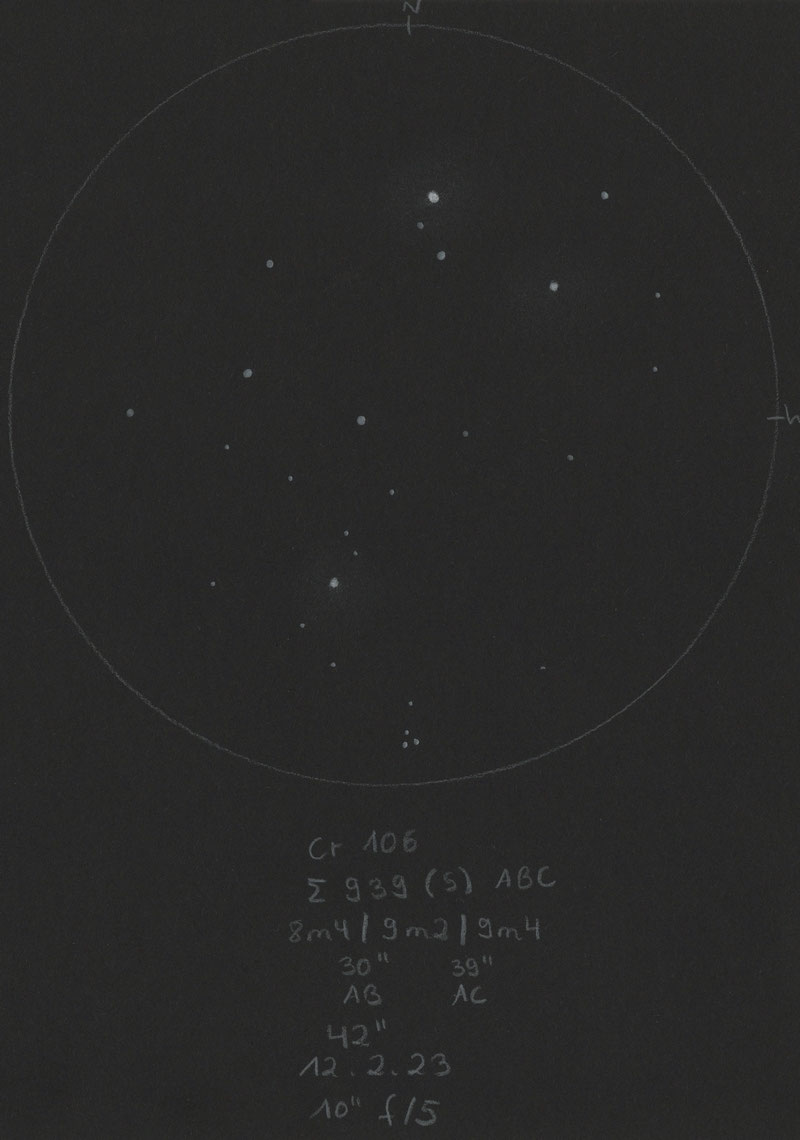 N
W
Cr 106
Σ 939 (S) ABC
8m4 | 9m2 | 9m4
30" 39"
AB AC
42"
12.2.23
10" f/5